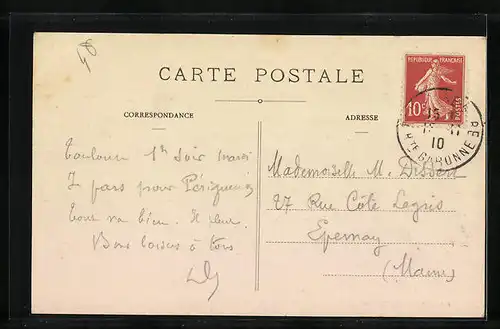 48
CARTE POSTALE
RÉPUBLIQUE FRANÇAISE
10c
POSTES
CORRESPONDANCE
ADRESSE
10
HTE GARONNE
Toulouse 1h Soir
Je pars pour Périgueux
Tout va bien. Il
Bons baisers à tous
Mademoiselle M.
27 Rue Côte Legris
Epernay
(Marne)